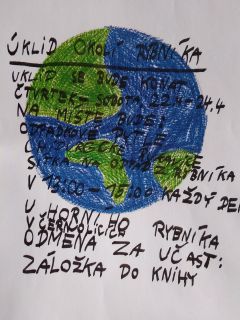 ÚKLID OKOLÍ RYBNÍKA
ÚKLID SE BUDE KONAT
ČTVRTEK - SOBOTA 22.4-24.4
NA MÍSTĚ BUDE:
ODPADKOVÉ PYTLE
SÍŤKA NA ODPADKY Z RYBNÍKA
V 13:00 - 15:00 KAŽDÝ DEN
U HORNÍHO RYBNÍKA
ODMĚNA ZA ÚČAST:
ZÁLOŽKA DO KNIHY